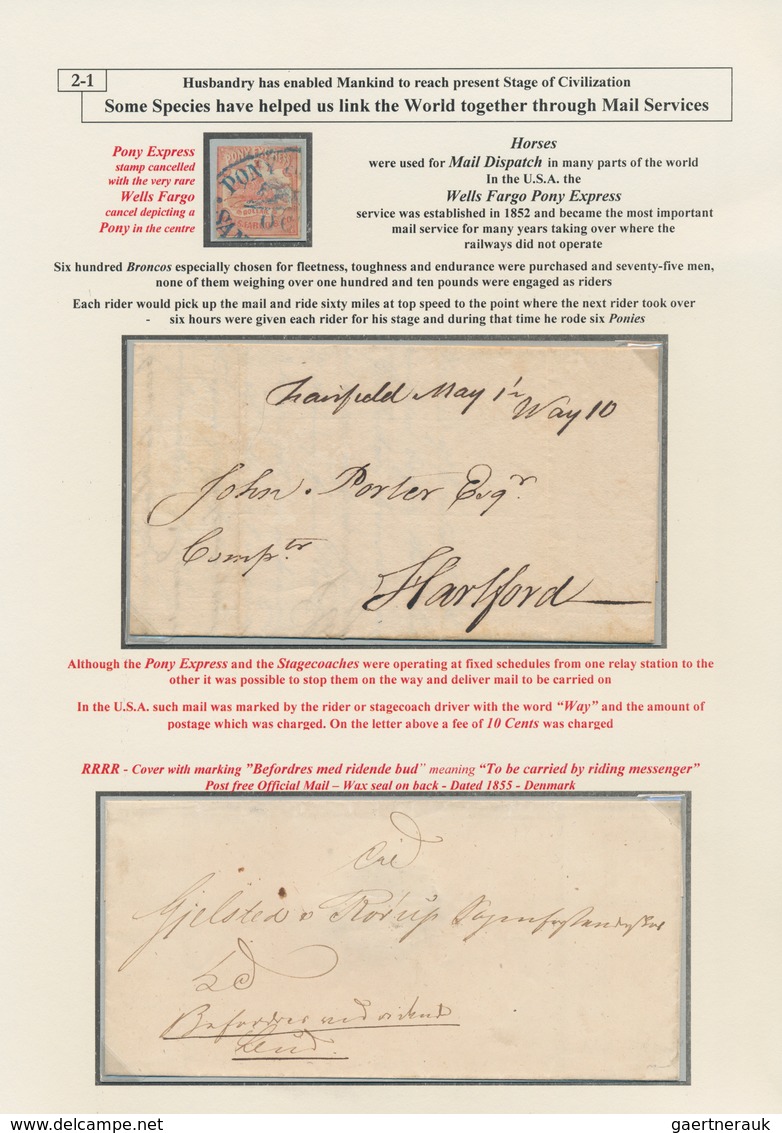 2-1
Husbandry has enabled Mankind to reach present Stage of Civilization
Some Species have helped us link the World together through Mail Services
Pony Express
stamp cancelled
with the very rare
Wells Fargo
cancel depicting a
Pony in the centre
PONY EXPRESS
PONY
Horses
were used for Mail Dispatch in many parts of the world
In the U.S.A. the
Wells Fargo Pony Express
service was established in 1852 and became the most important
mail service for many years taking over where the
railways did not operate
Six hundred Broncos especially chosen for fleetness, toughness and endurance were purchased and seventy-five men,
none of them weighing over one hundred and ten pounds were engaged as riders
Each rider would pick up the mail and ride sixty miles at top speed to the point where the next rider took over
- six hours were given each rider for his stage and during that time he rode six Ponies
Fairfield May 1st
Way 10
John Porter Esqr.
Comptr
Hartford
Although the Pony Express and the Stagecoaches were operating at fixed schedules from one relay station to the
other it was possible to stop them on the way and deliver mail to be carried on
In the U.S.A. such mail was marked by the rider or stagecoach driver with the word "Way" and the amount of
postage which was charged. On the letter above a fee of 10 Cents was charged
RRRR - Cover with marking "Befordres med ridende bud" meaning "To be carried by riding messenger"
Post free Official Mail – Wax seal on back - Dated 1855 - Denmark
Til
Gjelsted o Rørup Sogneforstanderskab
Befordres med ridende
bud.
delcampe.net
gaertnerauk